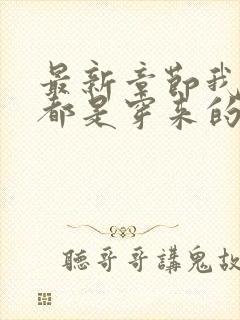 最新章節我
都是穿來的
聽哥哥講鬼故